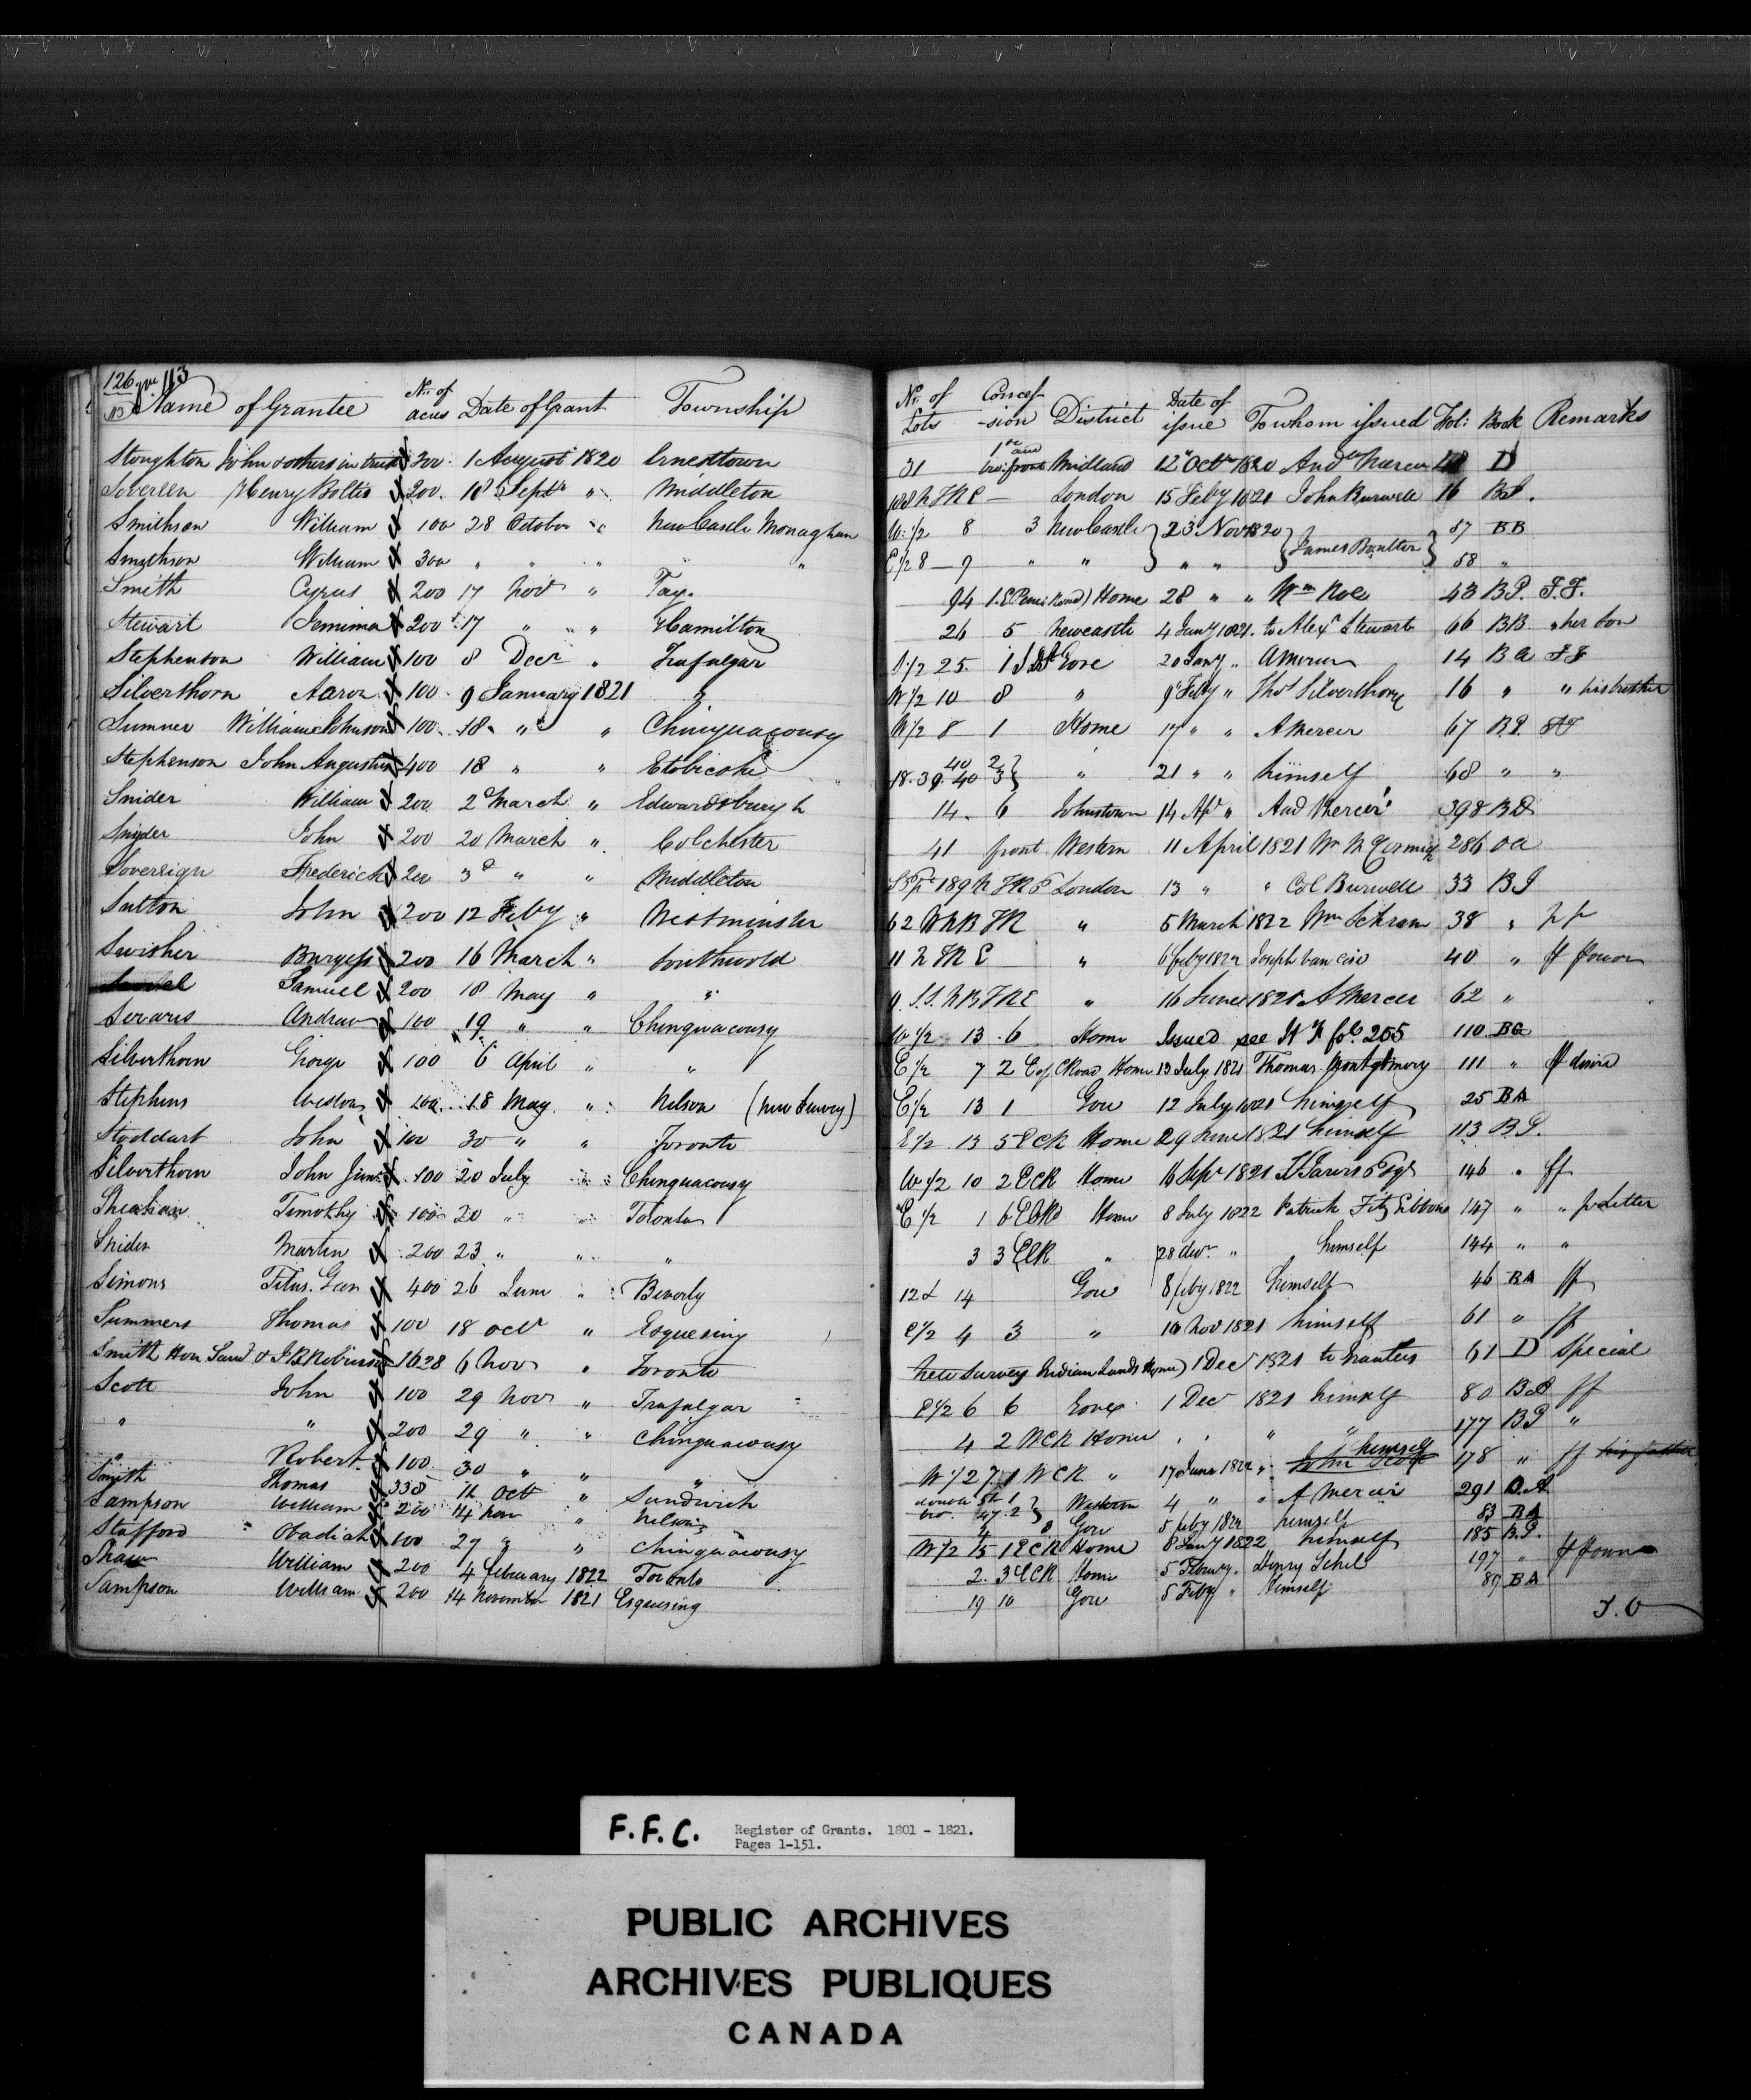 126 113
Name of Grantee Nr. of acres Date of Grant Township Nr. of Lots Concession District Date of issue To whom issued Fol: Book Remarks
Stoughton John & others in trust 300 1 August 1820 Ernesttown 31 1st and bro: front Midland 12 Octr 1820 Andw Mercer D
Sovereen Henry Boltis 200 18 Septr " Middleton N T R E London 15 Feby 1821 John Burwell 16 B.I.
Smithson William 100 28 October " New Castle Monaghan W: 1/2 8 3 NewCastle 23 Novr 1820 James Boulton 57 BB
Smithson William 300 " " " " E 1/2 8 9 " " " " 58 "
Smith Cyrus 200 17 Novr " Tay. 94 1. E (Penes Road) Home 28 " " Wm Roe 43 B.P. F.F.
Stewart Jemima 200 17 " " Hamilton 26 5 Newcastle 4 Jany 1821. to Alexr Stewart 66 BB " her son
Stephenson William 100 8 Decr " Trafalgar 1/2 25. 1 Gore 20 Jany " A Mercer 14 B a F F
Silverthorn Aaron 100 9 January 1821 " W 1/2 10 8 " 9 Feby " Thos Silverthorn 16 " " his brother
Sumner William Johnson 100 18 " " Chinguacousy W 1/2 8 1 Home 17 " " A Mercer 67 B.P.
Stephenson John Augustus 400 18 " " Etobicoke 18. 39. 40 40 2 3 " 21 " " himself 68 " "
Snider William 200 2 March " Edwardsburgh 14. 6 Johnstown 14 Apl " And Mercer 398 B D
Snyder John 200 20 March " Colchester 41 front Western 11 April 1821 Wm McCormick 286 O a
Sovereign Frederick 200 3d " " Middleton 189 N T R London 13 " " Col Burwell 33 B I
Sutton John 200 12 Feby " Westminster 62 W N B T R " 5 March 1822 Wm Schram 38 "
Swisher Burgess 200 16 March " Southwold 11 N T R E " 6 feby 1822 Joseph 40 "
Samuel 200 18 May " " N B T R E " 16 June 1821 A Mercer 62 "
Andrew 100 19 " " Chinguacousy W 1/2 13 6 Home Issued see fol. 205 110 BG
Silverthorn George 100 6 April " " E 1/2 7 2 E of CRoad Home 13 July 1821 Thomas Montgomery 111 " ff
Stephens Weston 200 18 May " Nelson (new Survey) E 1/2 13 1 Gore 12 July 1821 himself 25 BA
Stoddart John 100 30 " " Toronto E 1/2 13 5 E C R Home 29 June 1821 himself 113 B.P.
Silverthorn John Junr 100 20 July " Chinguacousy W 1/2 10 2 E C R Home 16 Sepr 1821 Jarvis Esqr 146 " ff
Timothy 100 20 " " Toronto E 1/2 1 6 E C R Home 8 July 1822 Patrick Fitz Gibbons 147 " " pr Letter
Snider Martin 200 23 " " " 3 3 E C R " 28 decr " himself 144 " "
Simons Titus Geer 400 26 June " Beverly 12 & 14 Gore 8 feby 1822 himself 46 BA ff
Summers Thomas 100 18 octr " Esquesing E 1/2 4 3 " 10 Nov 1821 himself 61 " ff
Smith Hon Saml & J B Robinson 1628 6 Novr " Toronto New Survey Indian Lands (Home) 1 Decr 1821 to Grantees 61 D Special
Scott John 100 29 Novr " Trafalgar E 1/2 6 6 Gore 1 Decr 1821 himself 80 B.A ff
" " 200 29 " " Chinguacousy 4 2 W C R Home " " " " 177 B P "
" Robert 100 30 " " " W 1/2 7 1 W C R " 17 June 1822 " himself 178 " ff his father
Smith Thomas 338 12 Octr " Sandwich 1 47. 2 Western 4 " " A Mercer 291 O.A
Sampson William 200 14 Nov " Nelson 4 8 Gore 5 feby 1822 himself 83 BA
Stafford Obadiah 100 27 " " Chinguacousy W 1/2 15 1 E C R Home 8 Jany 1822 himself 185 B.P.
Shaw William 200 4 february 1822 Toronto 2. 3 E C R Home 5 Febuy. Henry 197 " ff
Sampson William 200 14 November 1821 Esquesing 19 10 Gore 5 Feby " Himself 89 BA
T.O
F.F.C. Register of Grants. 1801 - 1821.
Pages 1-151.
PUBLIC ARCHIVES
ARCHIVES PUBLIQUES
CANADA